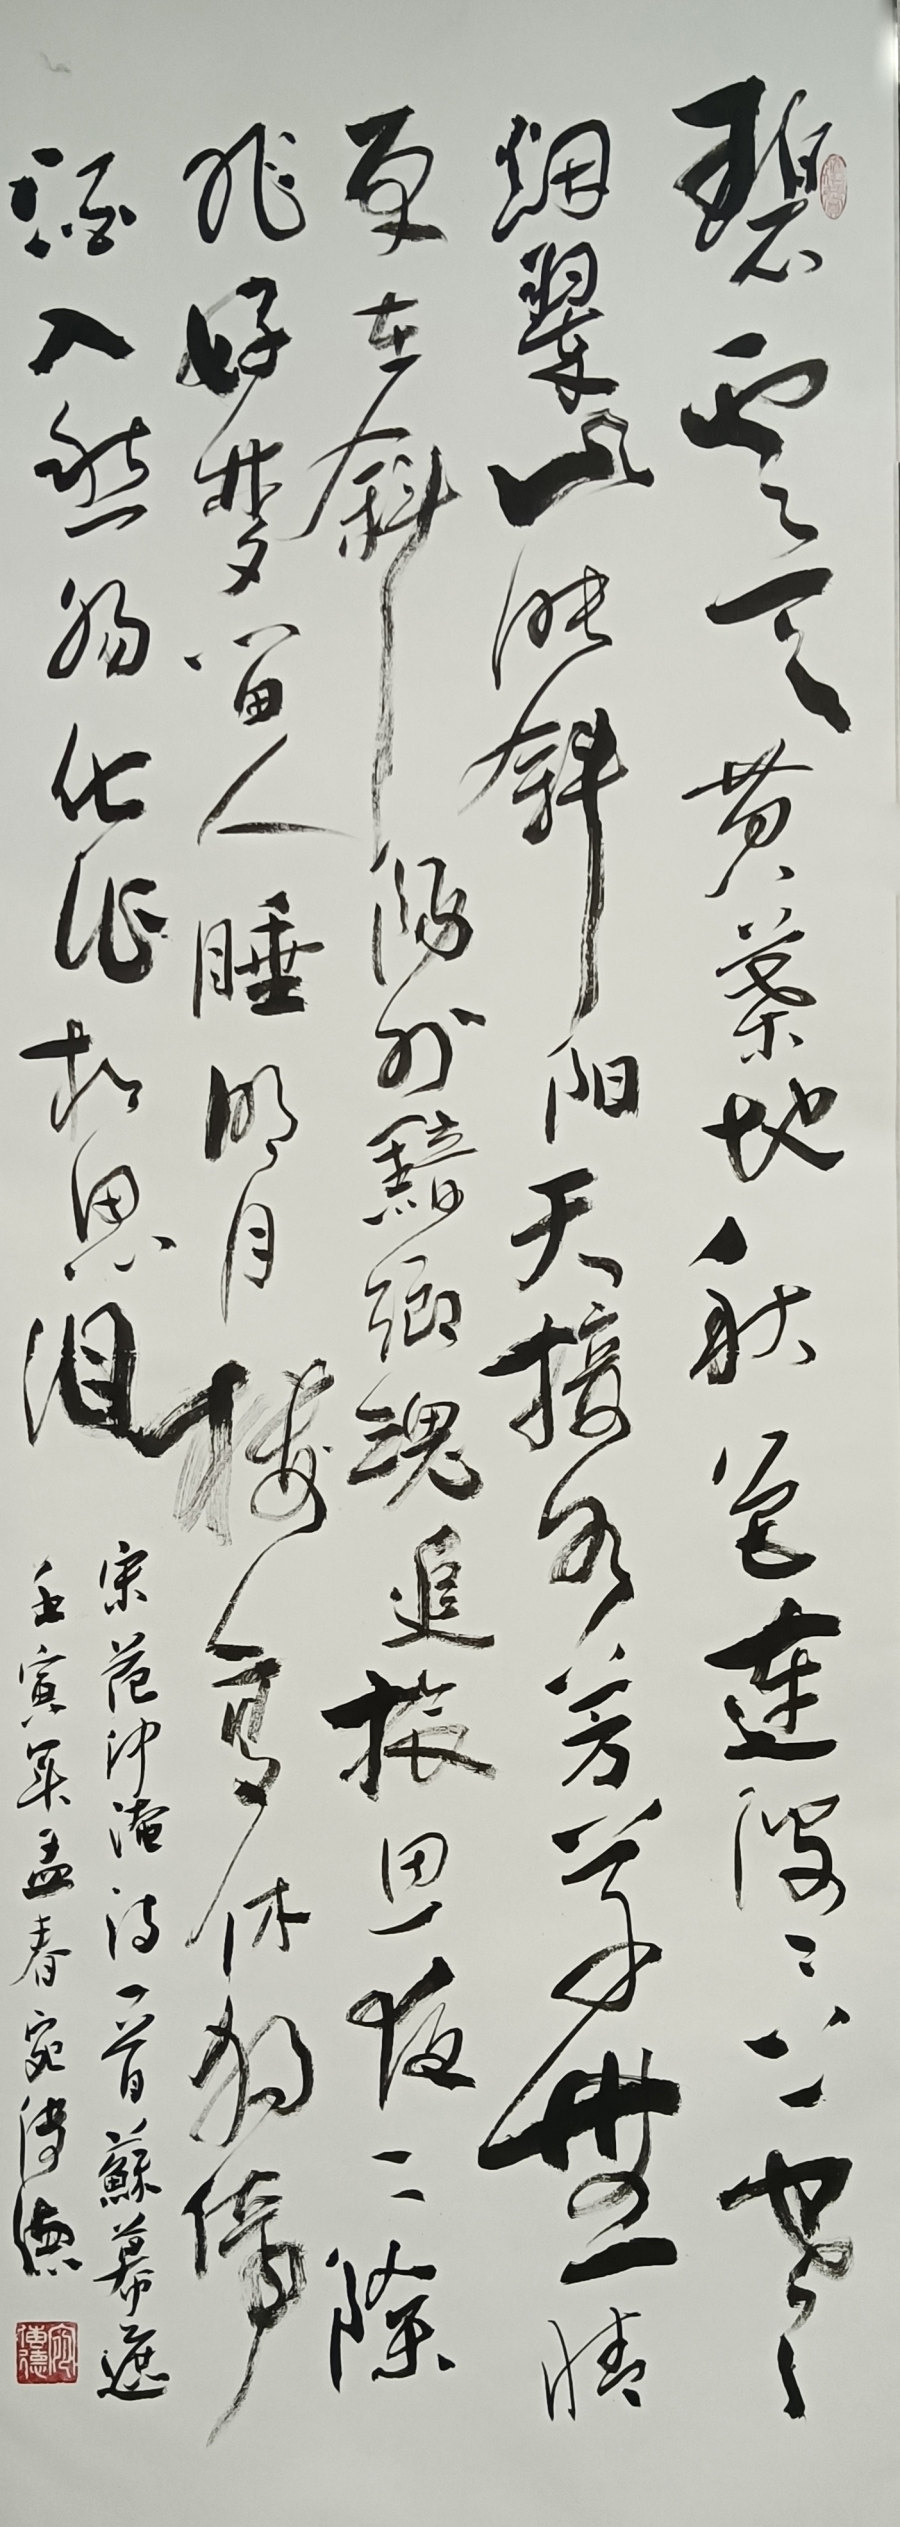 碧云天黄葉地秋色連波〻上寒
烟翠山映斜阳天接水芳草無情
更在斜陽外黯鄉魂追旅思夜〻除
非好夢留人睡明月楼高休独倚
酒入愁肠化作相思泪
宋范仲淹詩一首蘇幕遮
壬寅年孟春宛傳德